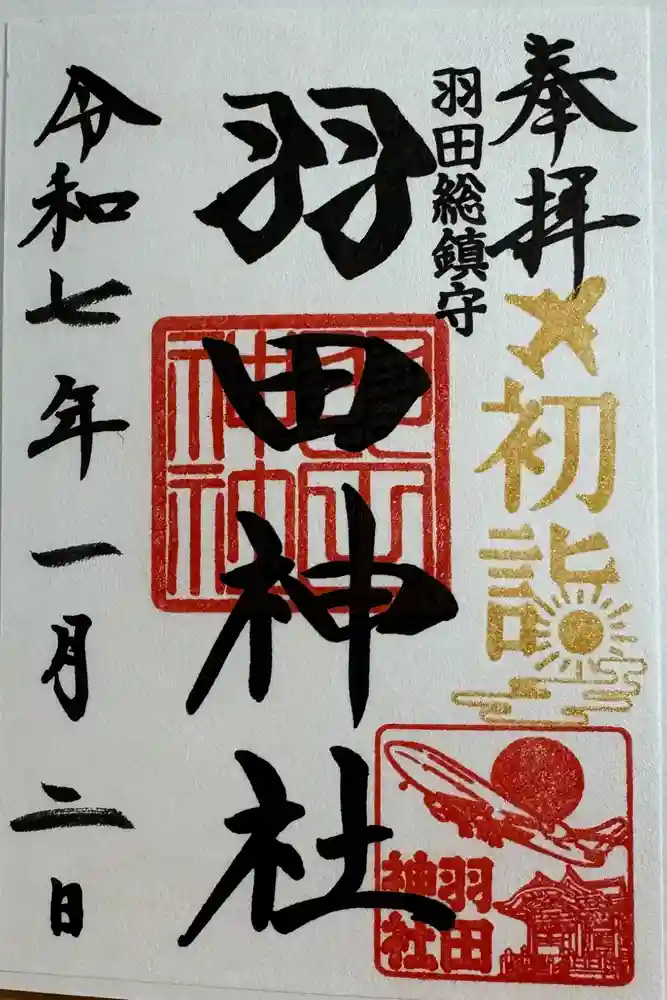 奉拝
初詣
羽田総鎮守
羽田神社
令和七年一月二日
羽田
神社